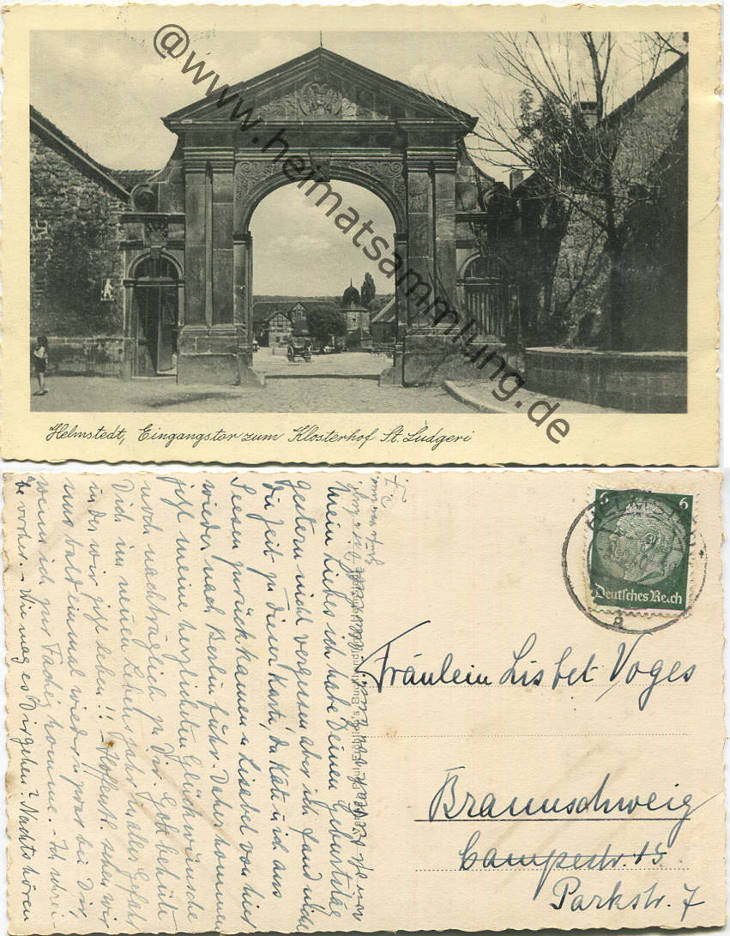 @www.heimatsammlung.de
Helmstedt, Eingangstor zum Klosterhof St. Ludgeri
6 6
Deutsches Reich
Fräulein Lisbet Voges
Braunschweig
Campestr. 15
Parkstr. 7
Mein Liebes ich habe Deinen Geburtstag
gestern nicht vergessen aber ich fand nicht
die Zeit zu einer Karte, da Käte u. ich aus
Seesen zurückkamen u. Lisabet von hier
wieder nach Berlin fuhr. Daher kommen
jetzt meine herzlichsten Glückwünsche
noch nachträglich zu Dir. Gott behüte
Dich im neuen Lebensjahr in aller Gefahr
in der wir jetzt leben!! - Hoffentl. sehen wir
uns bald einmal wieder u. zwar bei Dir,
wenn ich zur komme. - Ich schrei-
be vorher. - Wie mag es Dir gehen? Nachts hören